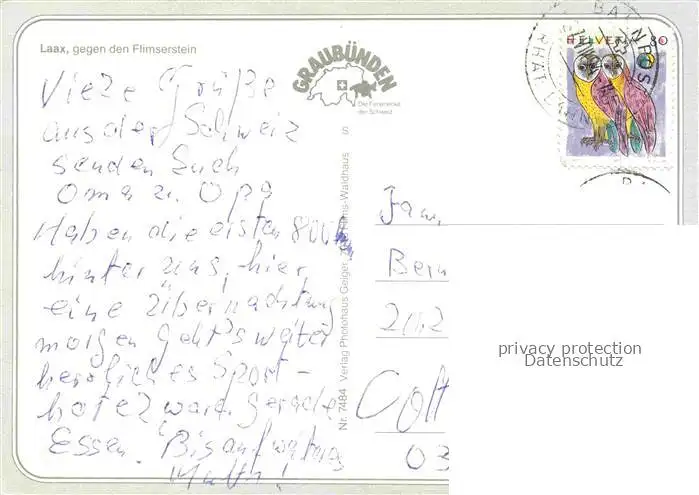 Laax, gegen den Flimserstein
GRAUBÜNDEN
Die Ferienecke
der Schweiz
HELVETIA 80
Viele Grüße
aus der Schweiz
senden Euch
Oma u. Opa
Haben die ersten 800
hinter uns, hier
eine Übernachtung
morgen geht's weiter
herrliches Sport-
hotel ward gerade
Essen. Bis auf weiteres
S
Nr. 7484 Verlag Photohaus Geiger, Flims-Waldhaus
Fam.
Cott
03
privacy protection
Datenschutz